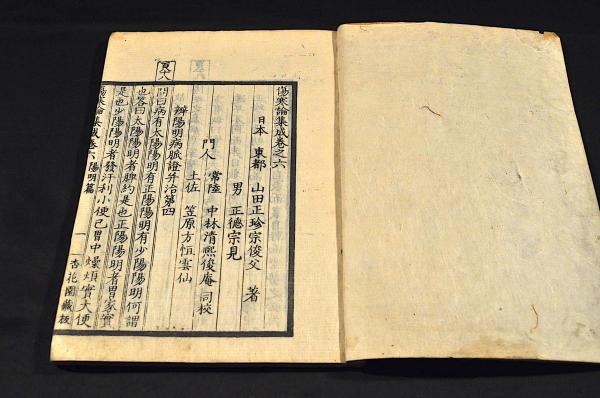 傷寒論集成卷之六
日本 東都 山田正珍宗俊父 著
男 正德宗見
門人 常陸 中林清熙俊庵 同校
土佐 笠原方恒雲仙
辨陽明病脈證并治第四
問曰病有太陽陽明有正陽陽明有少陽陽明何謂
也答曰太陽陽明者脾約是也正陽陽明者胃家實
是也少陽陽明者發汗利小便已胃中燥煩實大便
傷寒論集成卷六 陽明篇 一 杏花園藏板